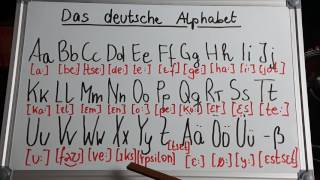 Das deutsche Alphabet
Aa Bb Cc Dd Ee Ff Gg Hh Ii Jj
[a:] [be:] [tse:] [de:] [e:] [ɛf] [ge:] [ha:] [i:] [jɔt]
Kk Ll Mm Nn Oo Pp Qq Rr Ss Tt
[ka:] [ɛl] [ɛm] [ɛn] [o:] [pe:] [ku:] [ɛʀ] [ɛs] [te:]
Uu Vv Ww Xx Yy Zz Ää Öö Üü -ß
[u:] [faʊ] [ve:] [ɪks] [ypsilon] [tsɛt] [ɛ:] [ø:] [y:] [ɛstsɛt]